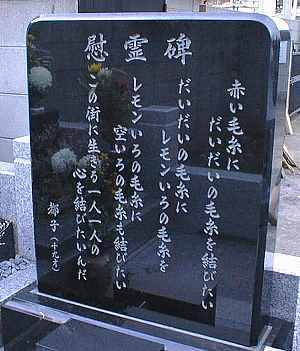 慰霊碑
赤い毛糸に
だいだいの毛糸を結びたい
だいだいの毛糸に
レモンいろの毛糸を
レモンいろの毛糸に
空いろの毛糸も結びたい
この街に生きる一人一人の
心を結びたいんだ
都子(十九才)